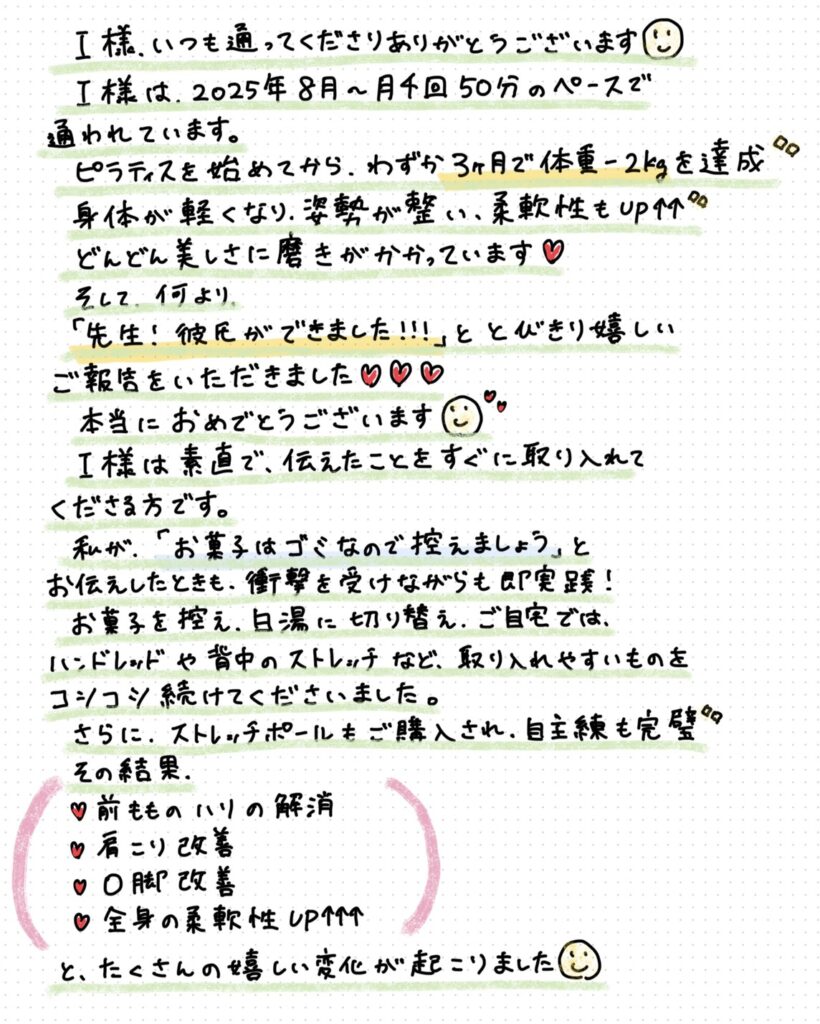 I様、いつも通ってくださりありがとうございます
I様は、2025年8月〜月4回50分のペースで
通われています。
ピラティスを始めてから、わずか3ヶ月で体重-2kgを達成
身体が軽くなり、姿勢が整い、柔軟性もUP↑↑
どんどん美しさに磨きがかかっています♥
そして、何より、
「先生!彼氏ができました!!!」と とびきり嬉しい
ご報告をいただきました♥♥♥
本当におめでとうございます
I様は素直で、伝えたことをすぐに取り入れて
くださる方です。
私が、「お菓子はゴミなので控えましょう」と
お伝えしたときも、衝撃を受けながらも即実践!
お菓子を控え、白湯に切り替え、ご自宅では、
ハンドレッドや背中のストレッチなど、取り入れやすいものを
コツコツ続けてくださいました。
さらに、ストレッチポールもご購入され、自主練も完璧
その結果、
♥前もものハリの解消
♥肩こり改善
♥O脚改善
♥全身の柔軟性UP↑↑↑
と、たくさんの嬉しい変化が起こりました